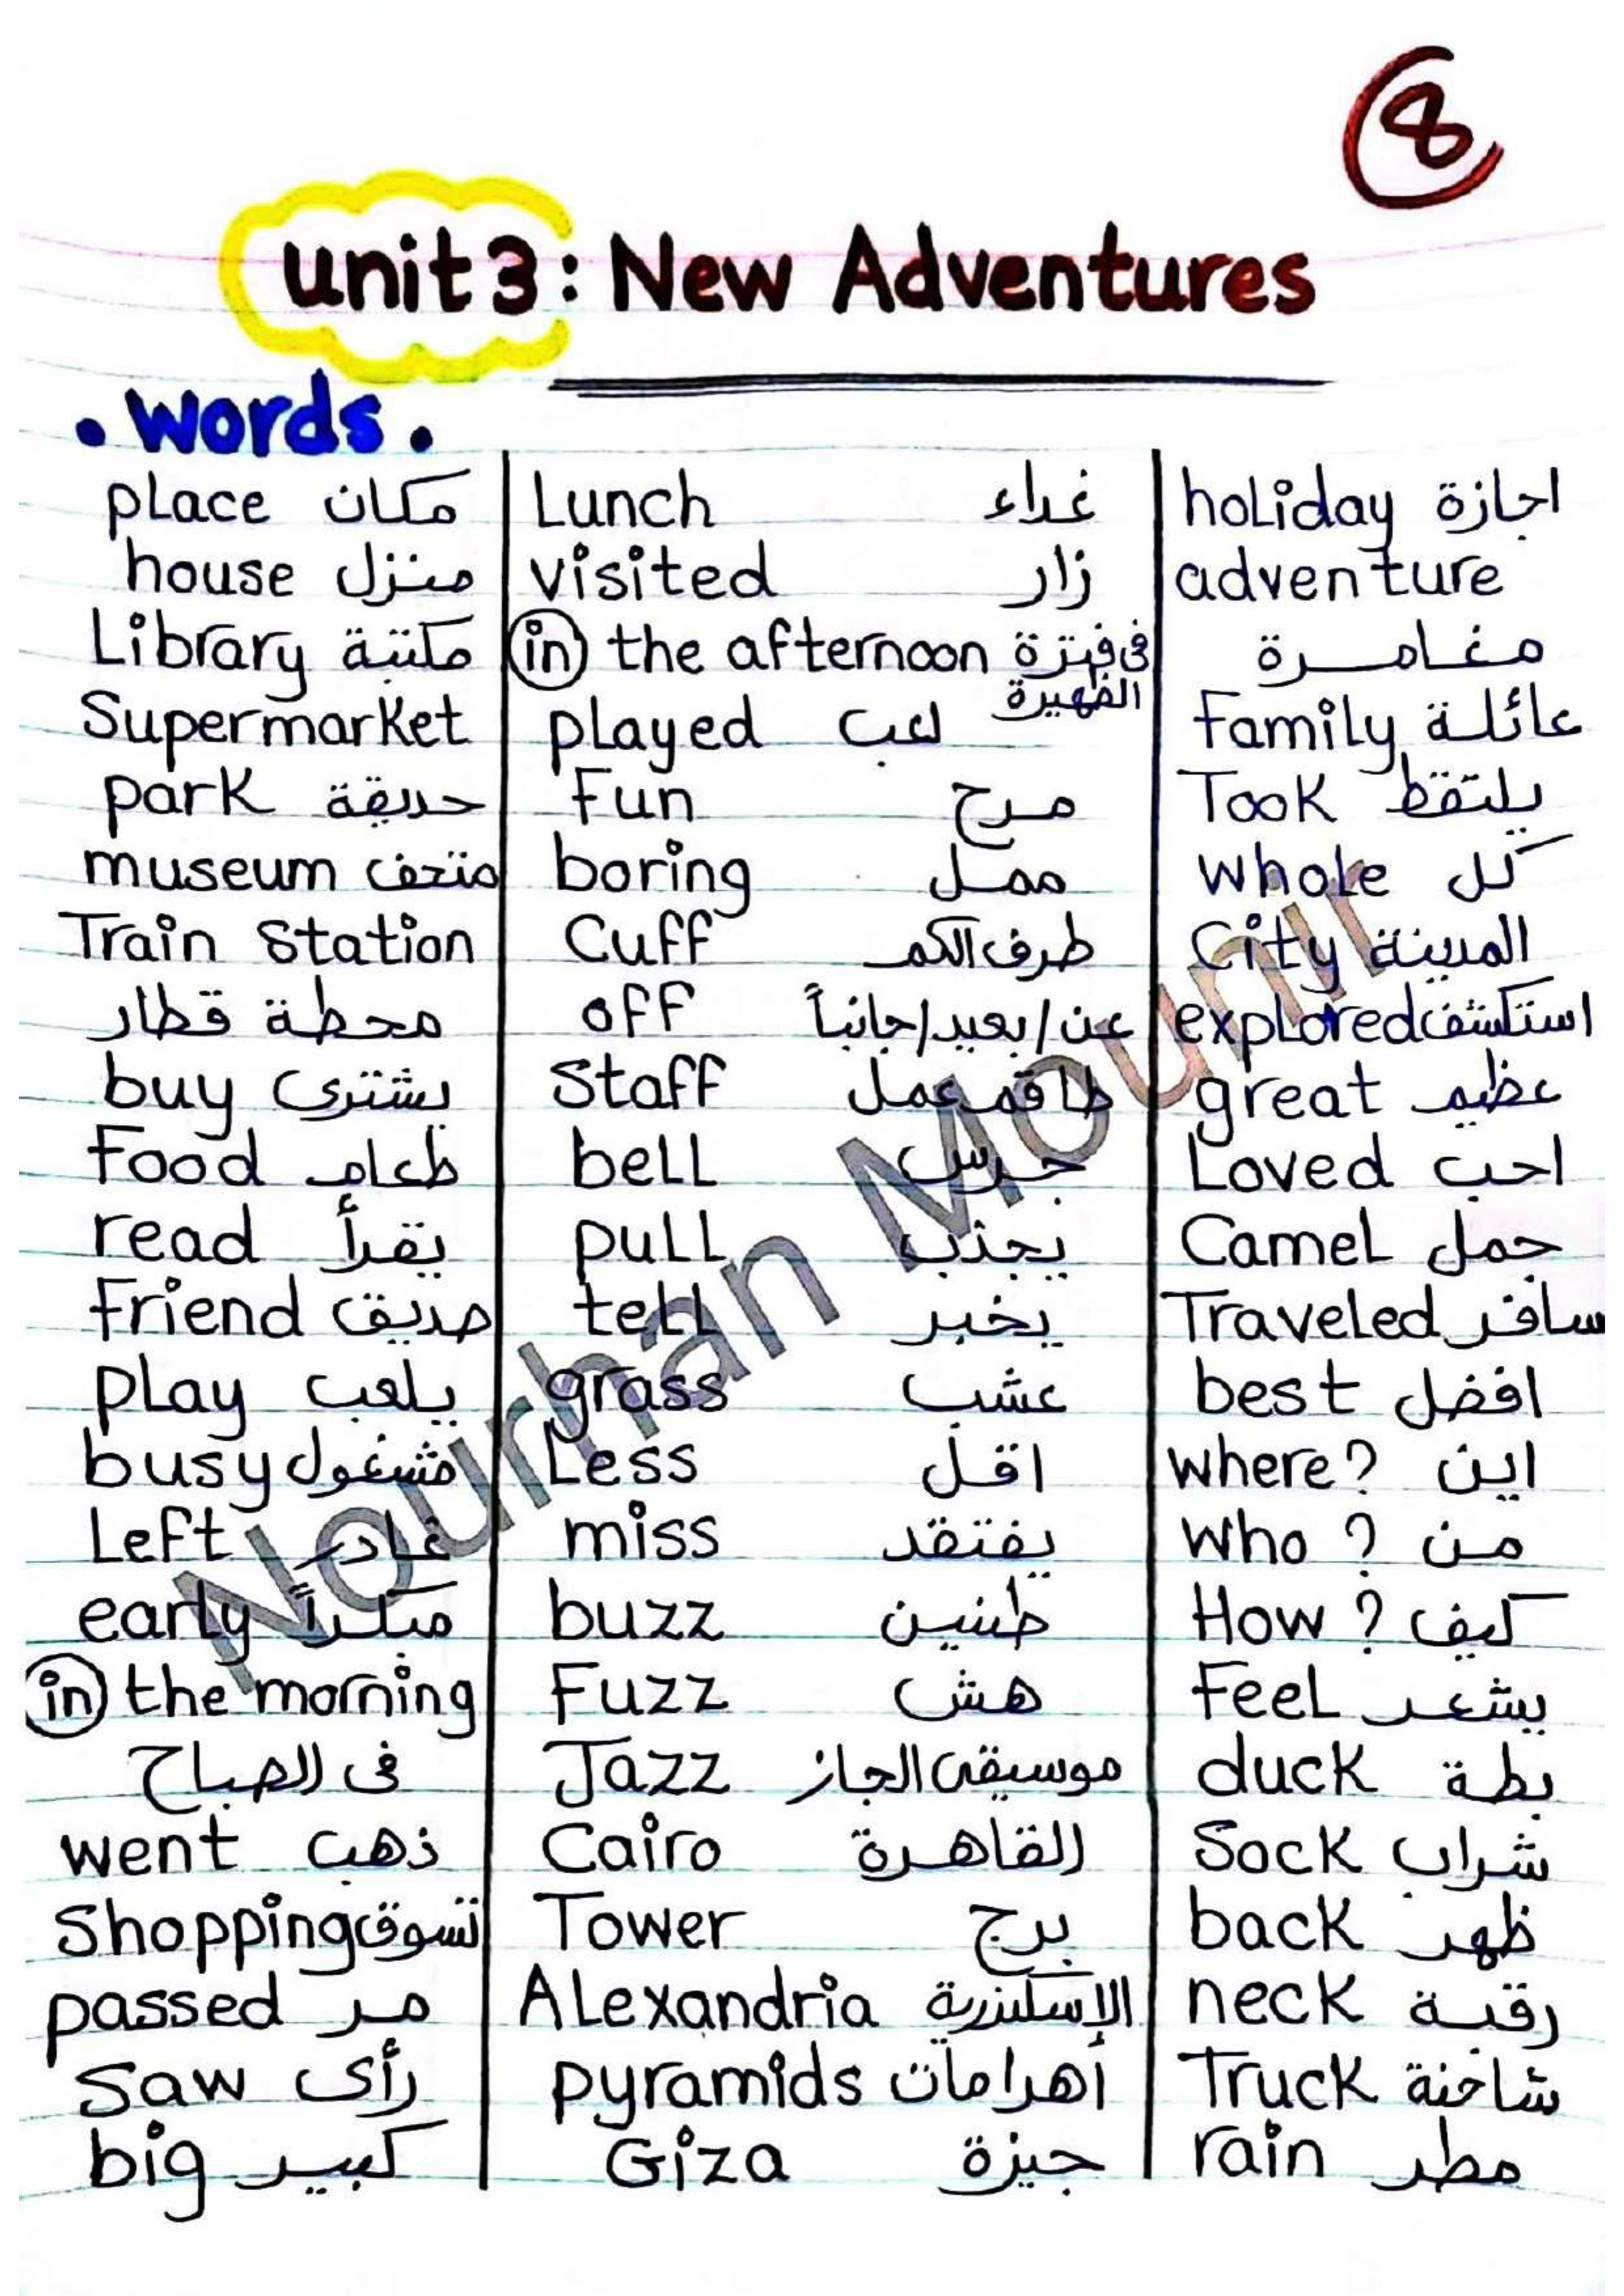 8
unit 3: New Adventures
• words •
place مكان
house منزل
Library مكتبة
Supermarket
park حديقة
museum متحف
Train Station
محطة قطار
buy يشترى
Food طعام
read يقرأ
Friend صديق
play يلعب
busy مشغول
Left غادر
early مبكراً
in the morning
فى الصباح
went ذهب
Shopping تسوق
passed مر
Saw رأى
big كبير
Lunch غداء
visited زار
in the afternoon فى فترة الظهيرة
played لعب
Fun مرح
boring ممل
Cuff طرف الكم
off عن / بعيد / جانباً
Staff طاقم عمل
bell جرس
pull يجذب
tell يخبر
grass عشب
Less اقل
miss يفتقد
buzz طنين
Fuzz هش
Jazz موسيقى الجاز
Cairo القاهرة
Tower برج
Alexandria الإسكندرية
pyramids أهرامات
Giza جيزة
holiday اجازة
adventure
مغامرة
Family عائلة
Took يلتقط
whole كل
City المدينة
explored استكشف
great عظيم
Loved احب
Camel جمل
Traveled سافر
best افضل
where? اين
who? من
How? كيف
Feel يشعر
duck بطة
Sock شراب
back ظهر
neck رقبة
Truck شاحنة
rain مطر
Nourhan Mounir